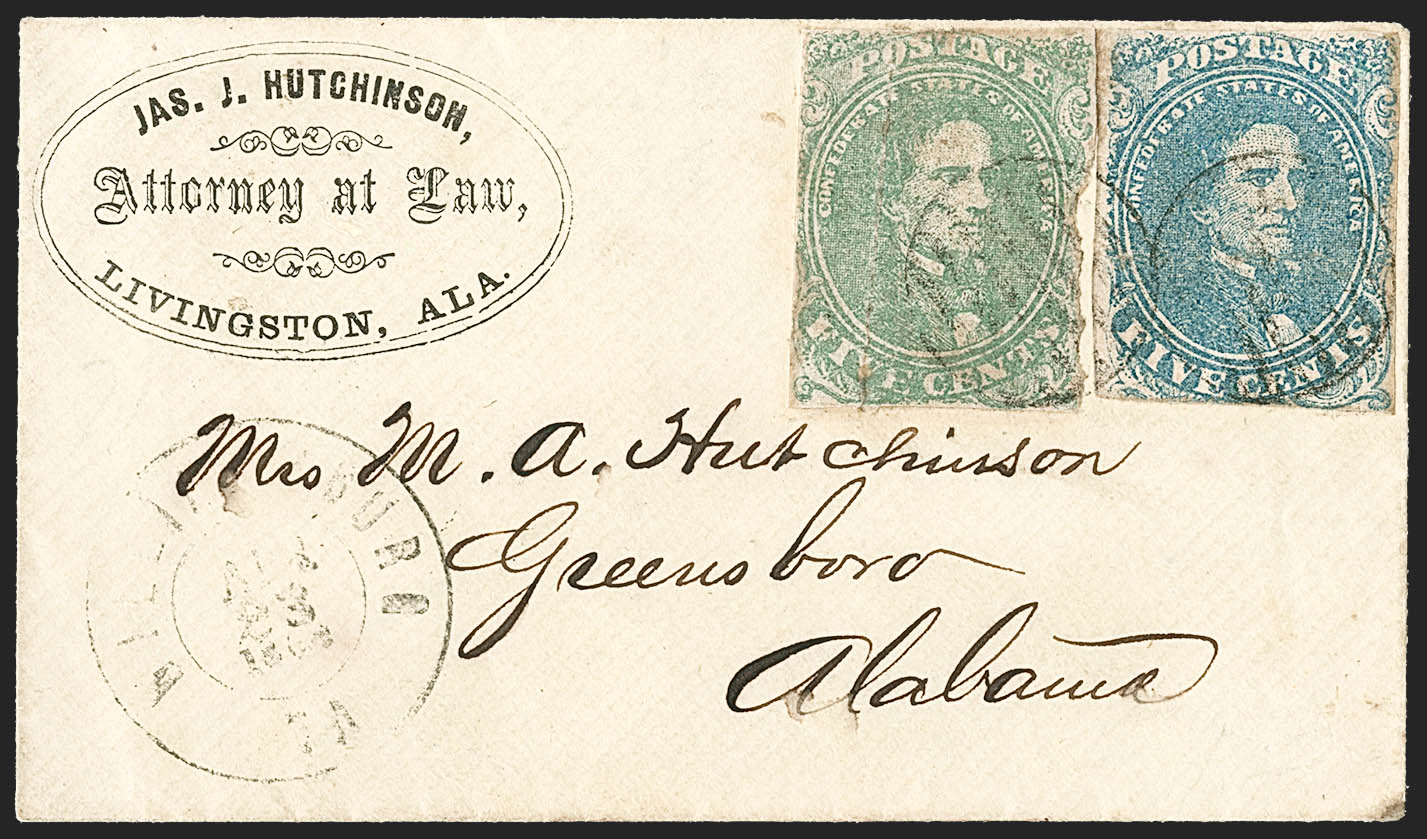 JAS. J. HUTCHINSON,
Attorney at Law,
LIVINGSTON, ALA.
POSTAGE
CONFEDERATE STATES OF AMERICA
FIVE CENTS
POSTAGE
CONFEDERATE STATES OF AMERICA
FIVE CENTS
Mrs M. A. Hutchinson
Greensboro
Alabama